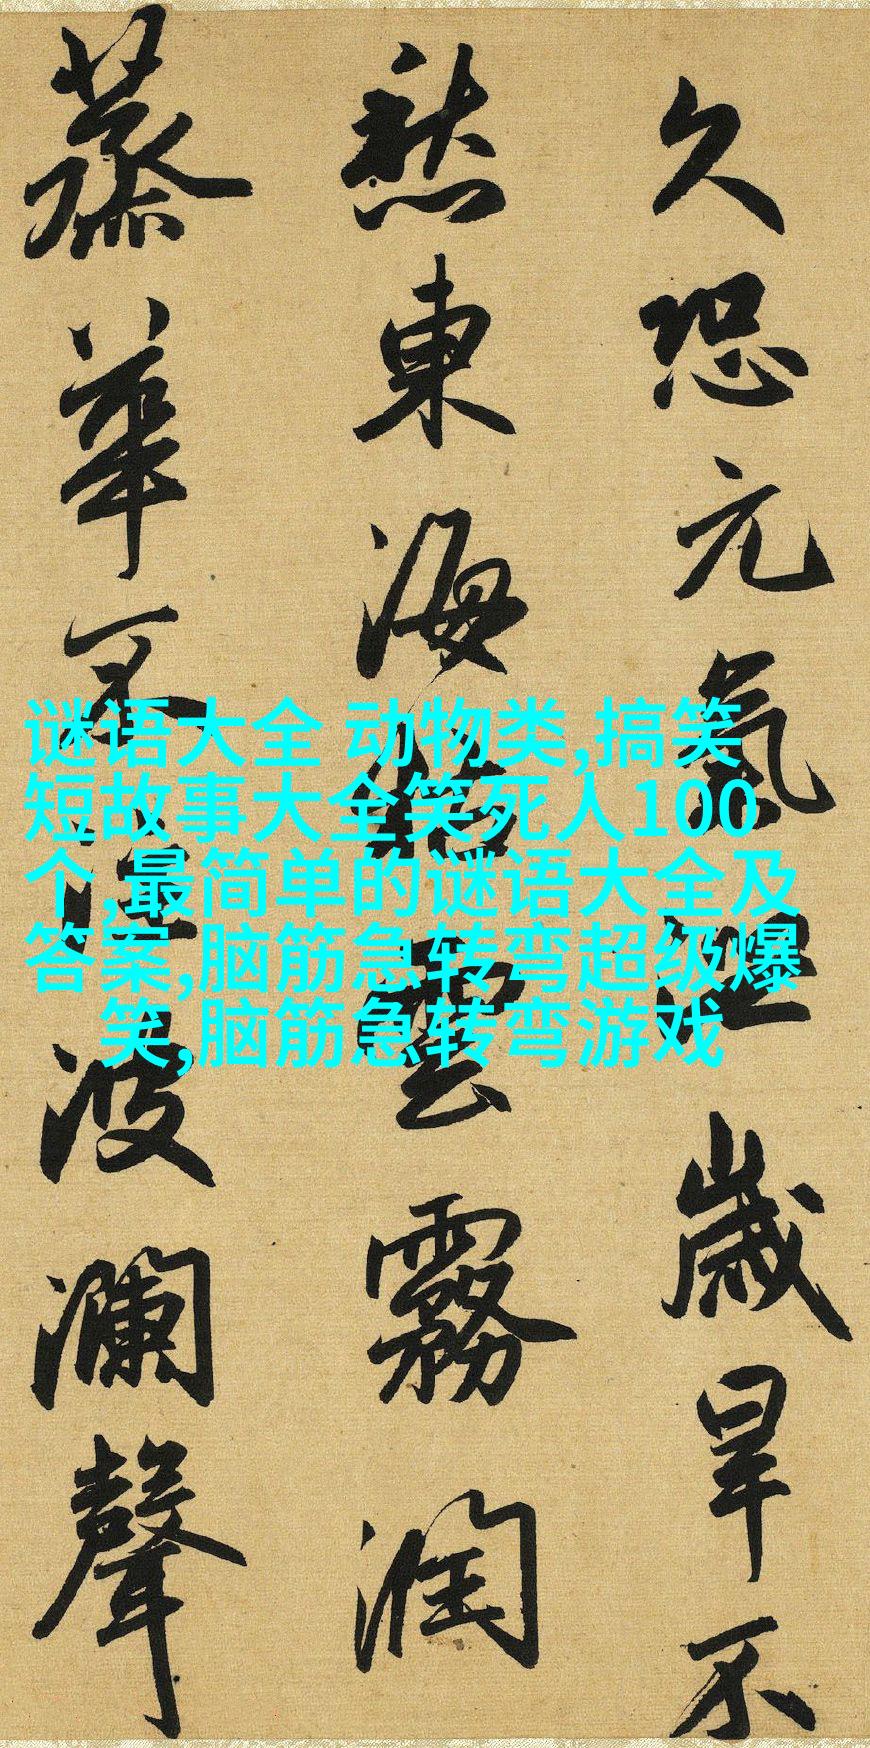 久恐元氣泄歲旱不
愁東海枯雲霧潤
蒸華不注波瀾聲
谜语大全 动物类,搞笑
短故事大全笑死人100
个,最简单的谜语大全及
答案,脑筋急转弯超级爆
笑,脑筋急转弯游戏